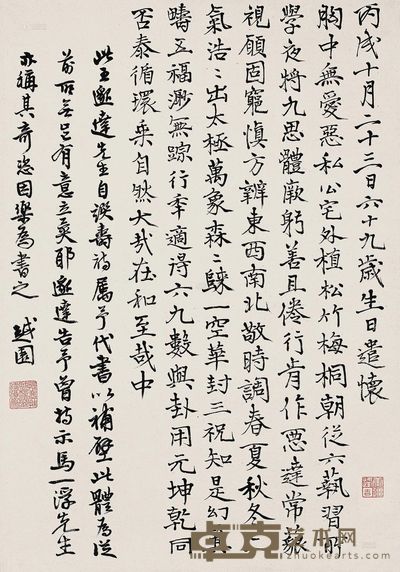 丙戌十月二十三日六十九歲生日遣懷
胸中無愛惡私公宅外植松竹梅桐朝從六藝習前
學夜將九思體厥躬善且倦行肯作惡達常敢
視顧固窮慎方辨東西南北敬時調春夏秋冬二
氣浩〻出太極萬象森〻歸一空華封三祝知是幻箕
疇五福渺無踪行年適得六九數與卦用元坤乾同
否泰循環乘自然大哉在和至哉中
此王邈達先生自撰壽詩屬予代書以補壁此體為從
前所無豈有意立異耶邈達告予曾持示馬一浮先生
亦稱其奇恣因樂為書之 越園
卓克艺术网
zhuokearts.com